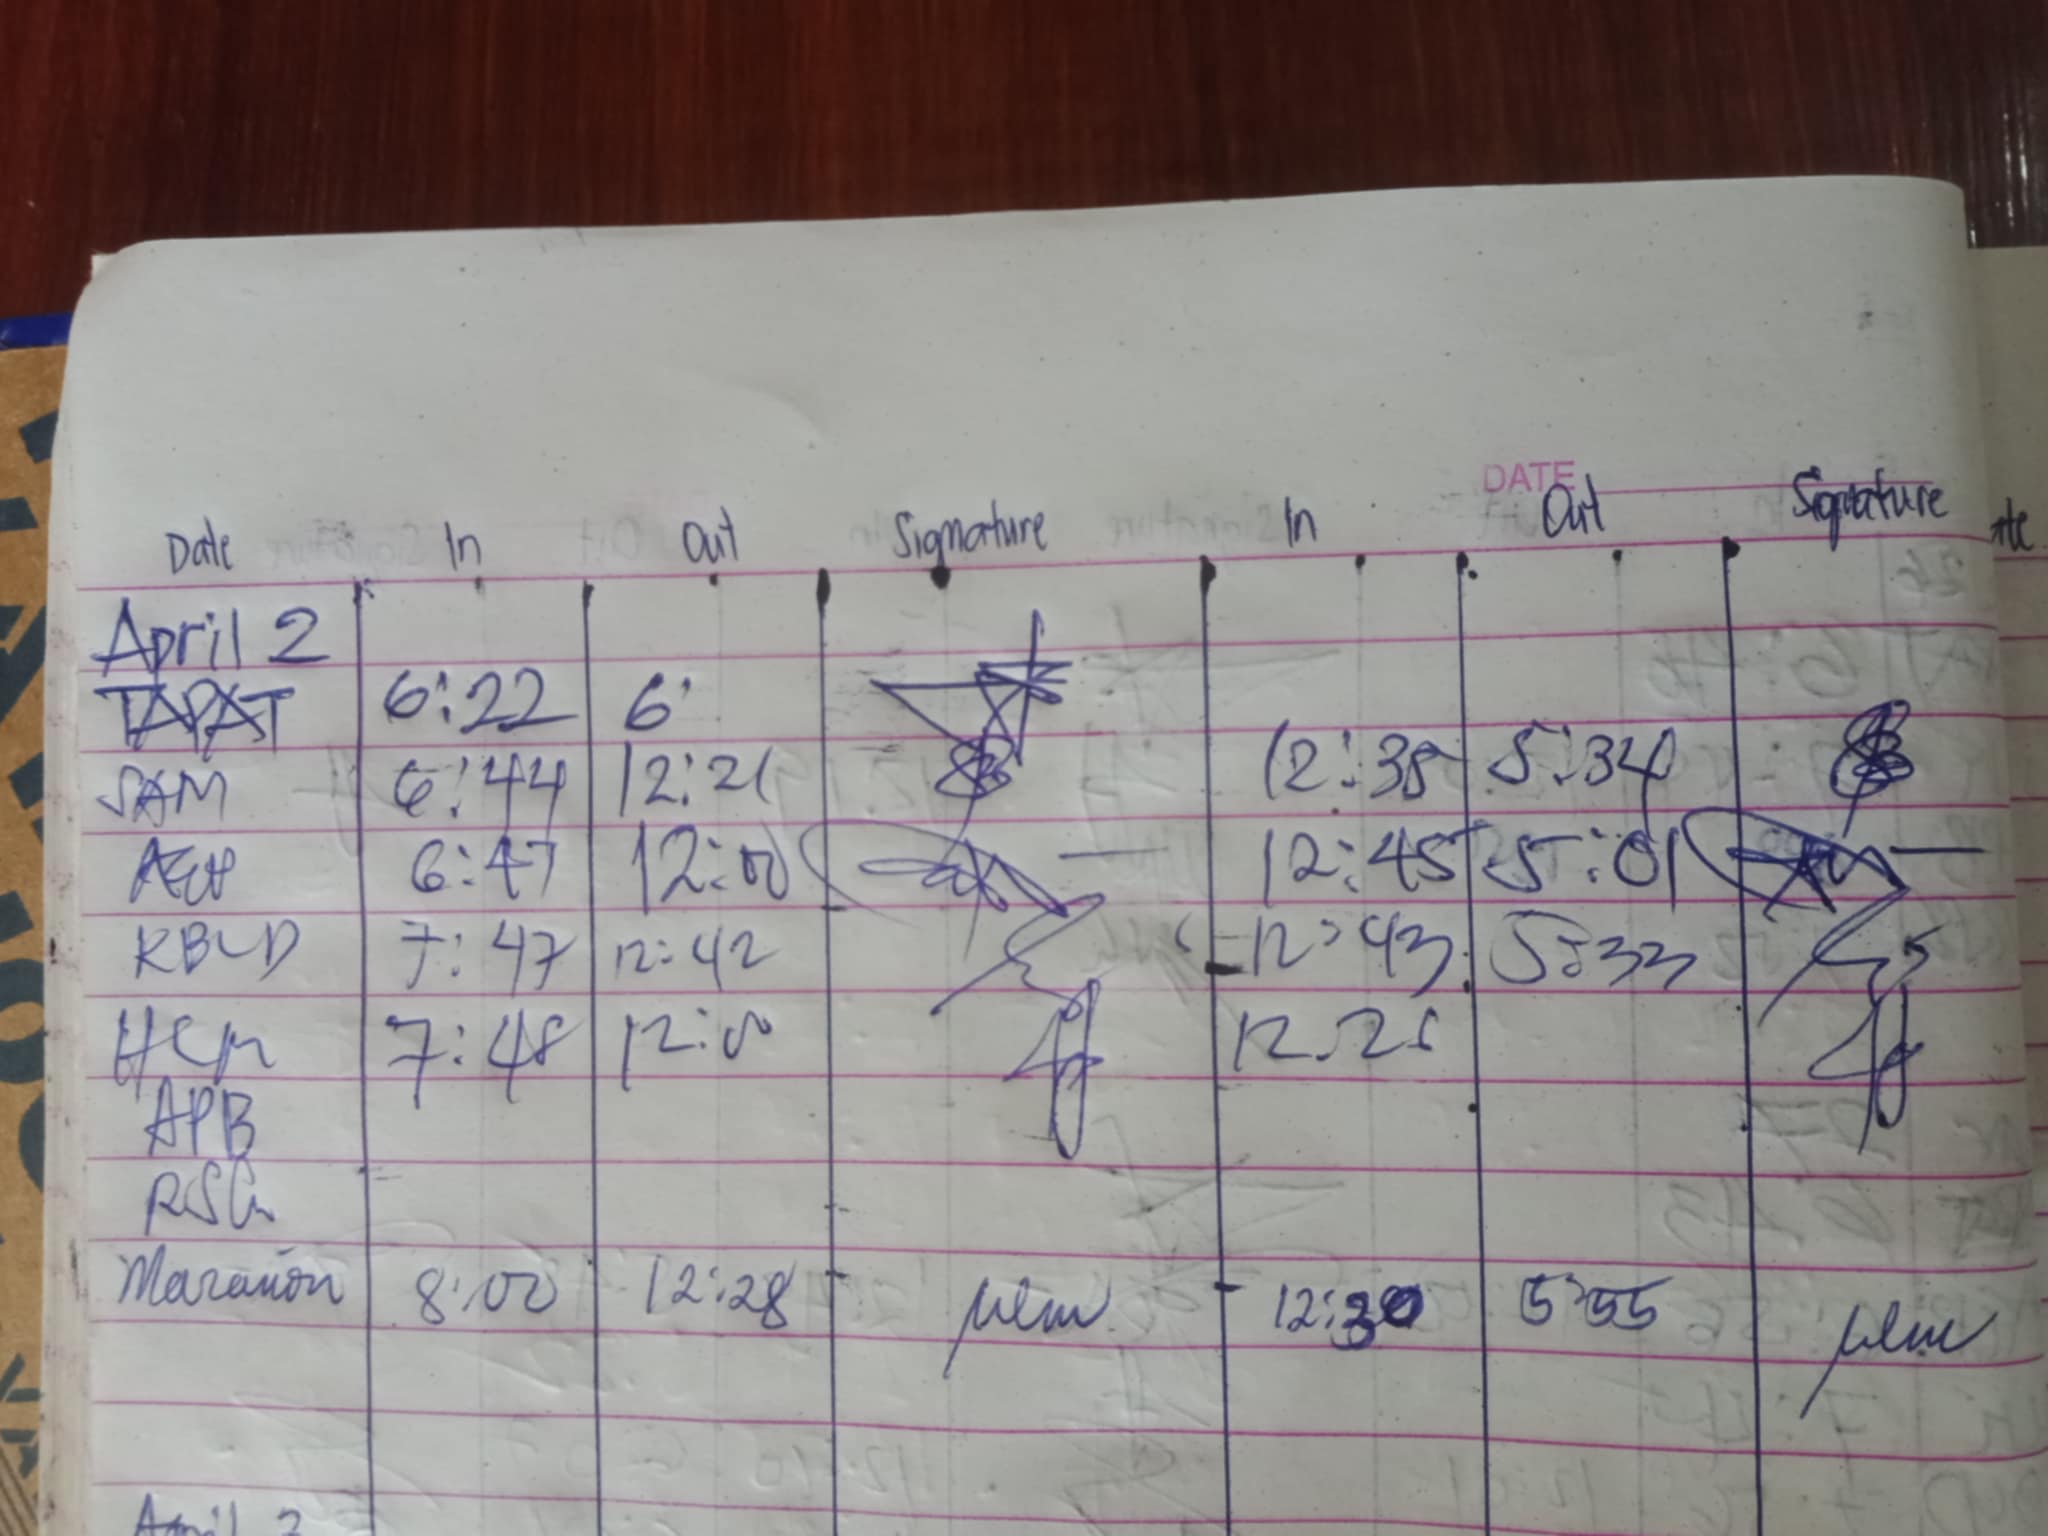 DATE
Date In Out Signature In Out Signature
April 2
TAPAT 6:22 6:
SAM 6:44 12:21 12:38 5:34
6:47 12:00 12:45 5:01
KBLD 7:47 12:42 12:43 5:33
HCM 7:48 12:00 12:25
APB
RSG
Marañon 8:00 12:28 mem 12:30 5:55 mem
April 3